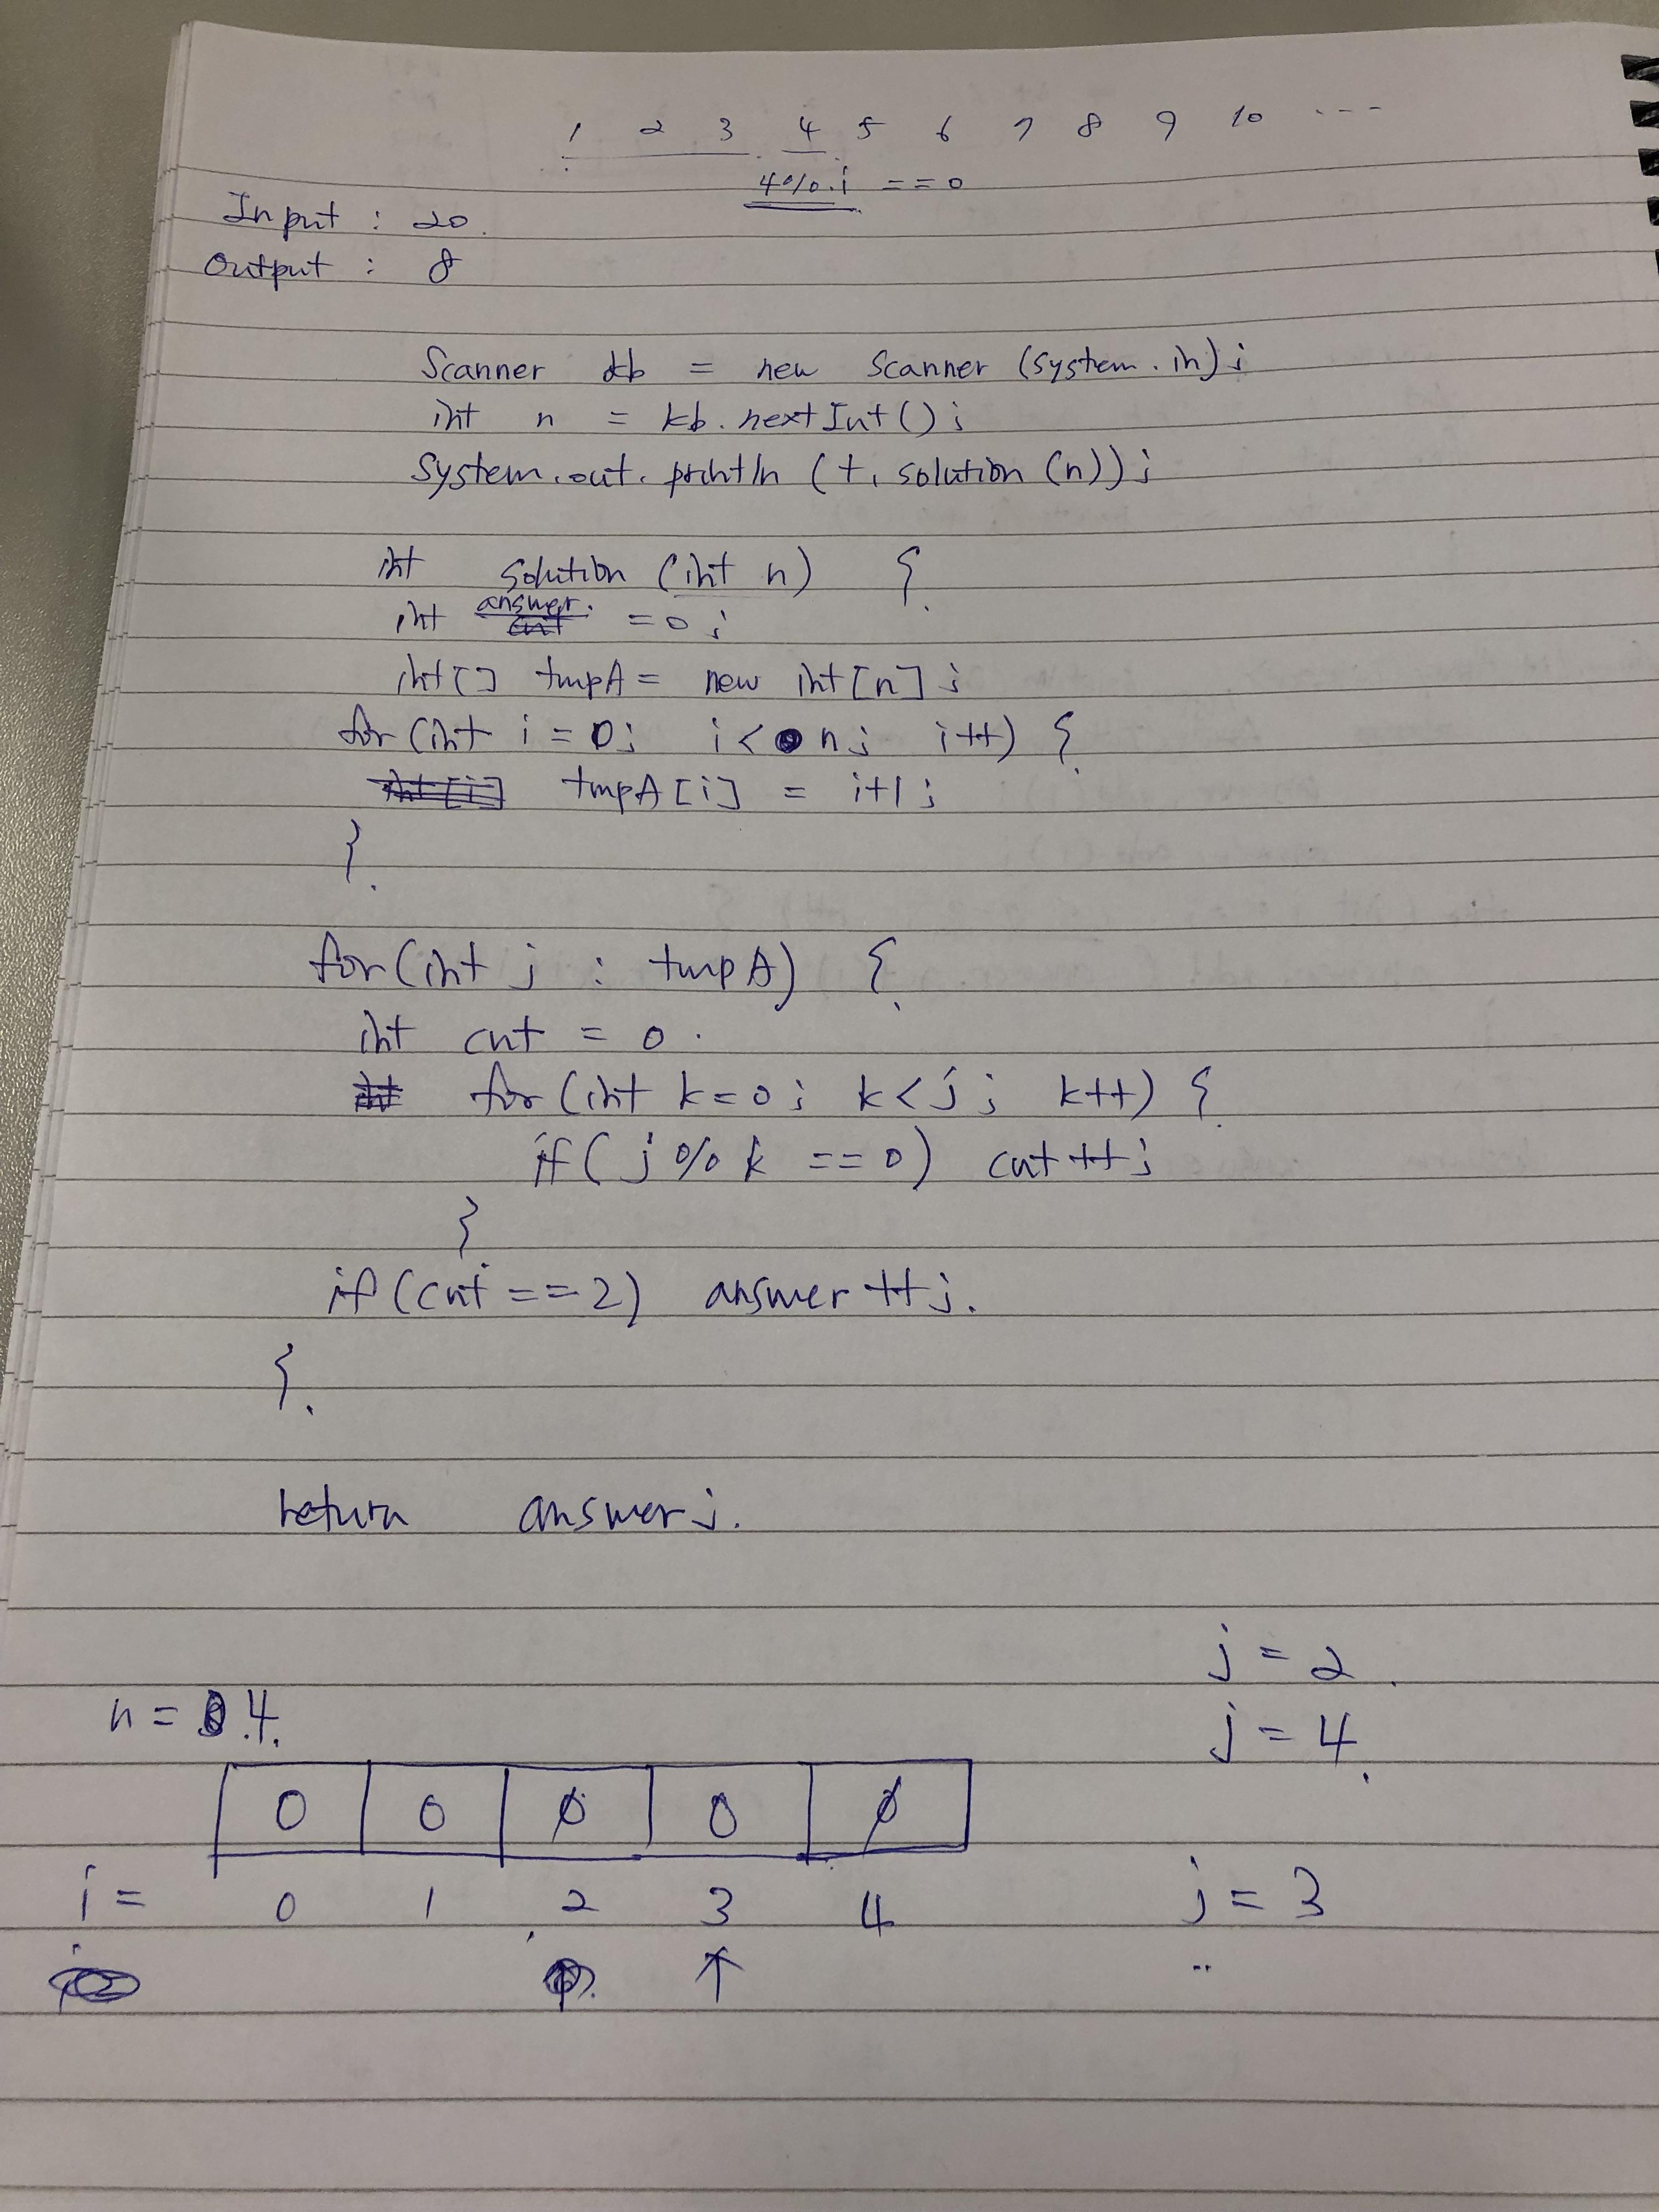 1 2 3 4 5 6 7 8 9 10 ---
4%i == 0
Input : 20.
Output : 8
Scanner kb = new Scanner (System.in);
int n = kb.nextInt();
System.out.println (t.solution (n));
int solution (int n) {
int answer = 0;
int[] tmpA = new int[n];
for (int i = 0; i < n; i++) {
tmpA[i] = i+1;
}
for (int j : tmpA) {
int cnt = 0.
for (int k=0; k<j; k++) {
if ( j % k == 0) cnt++;
}
if (cnt == 2) answer++;
}
return answer;
j = 2
n = 4.
j = 4
0 0 0 0 0
i = 0 1 2 3 4
j = 3